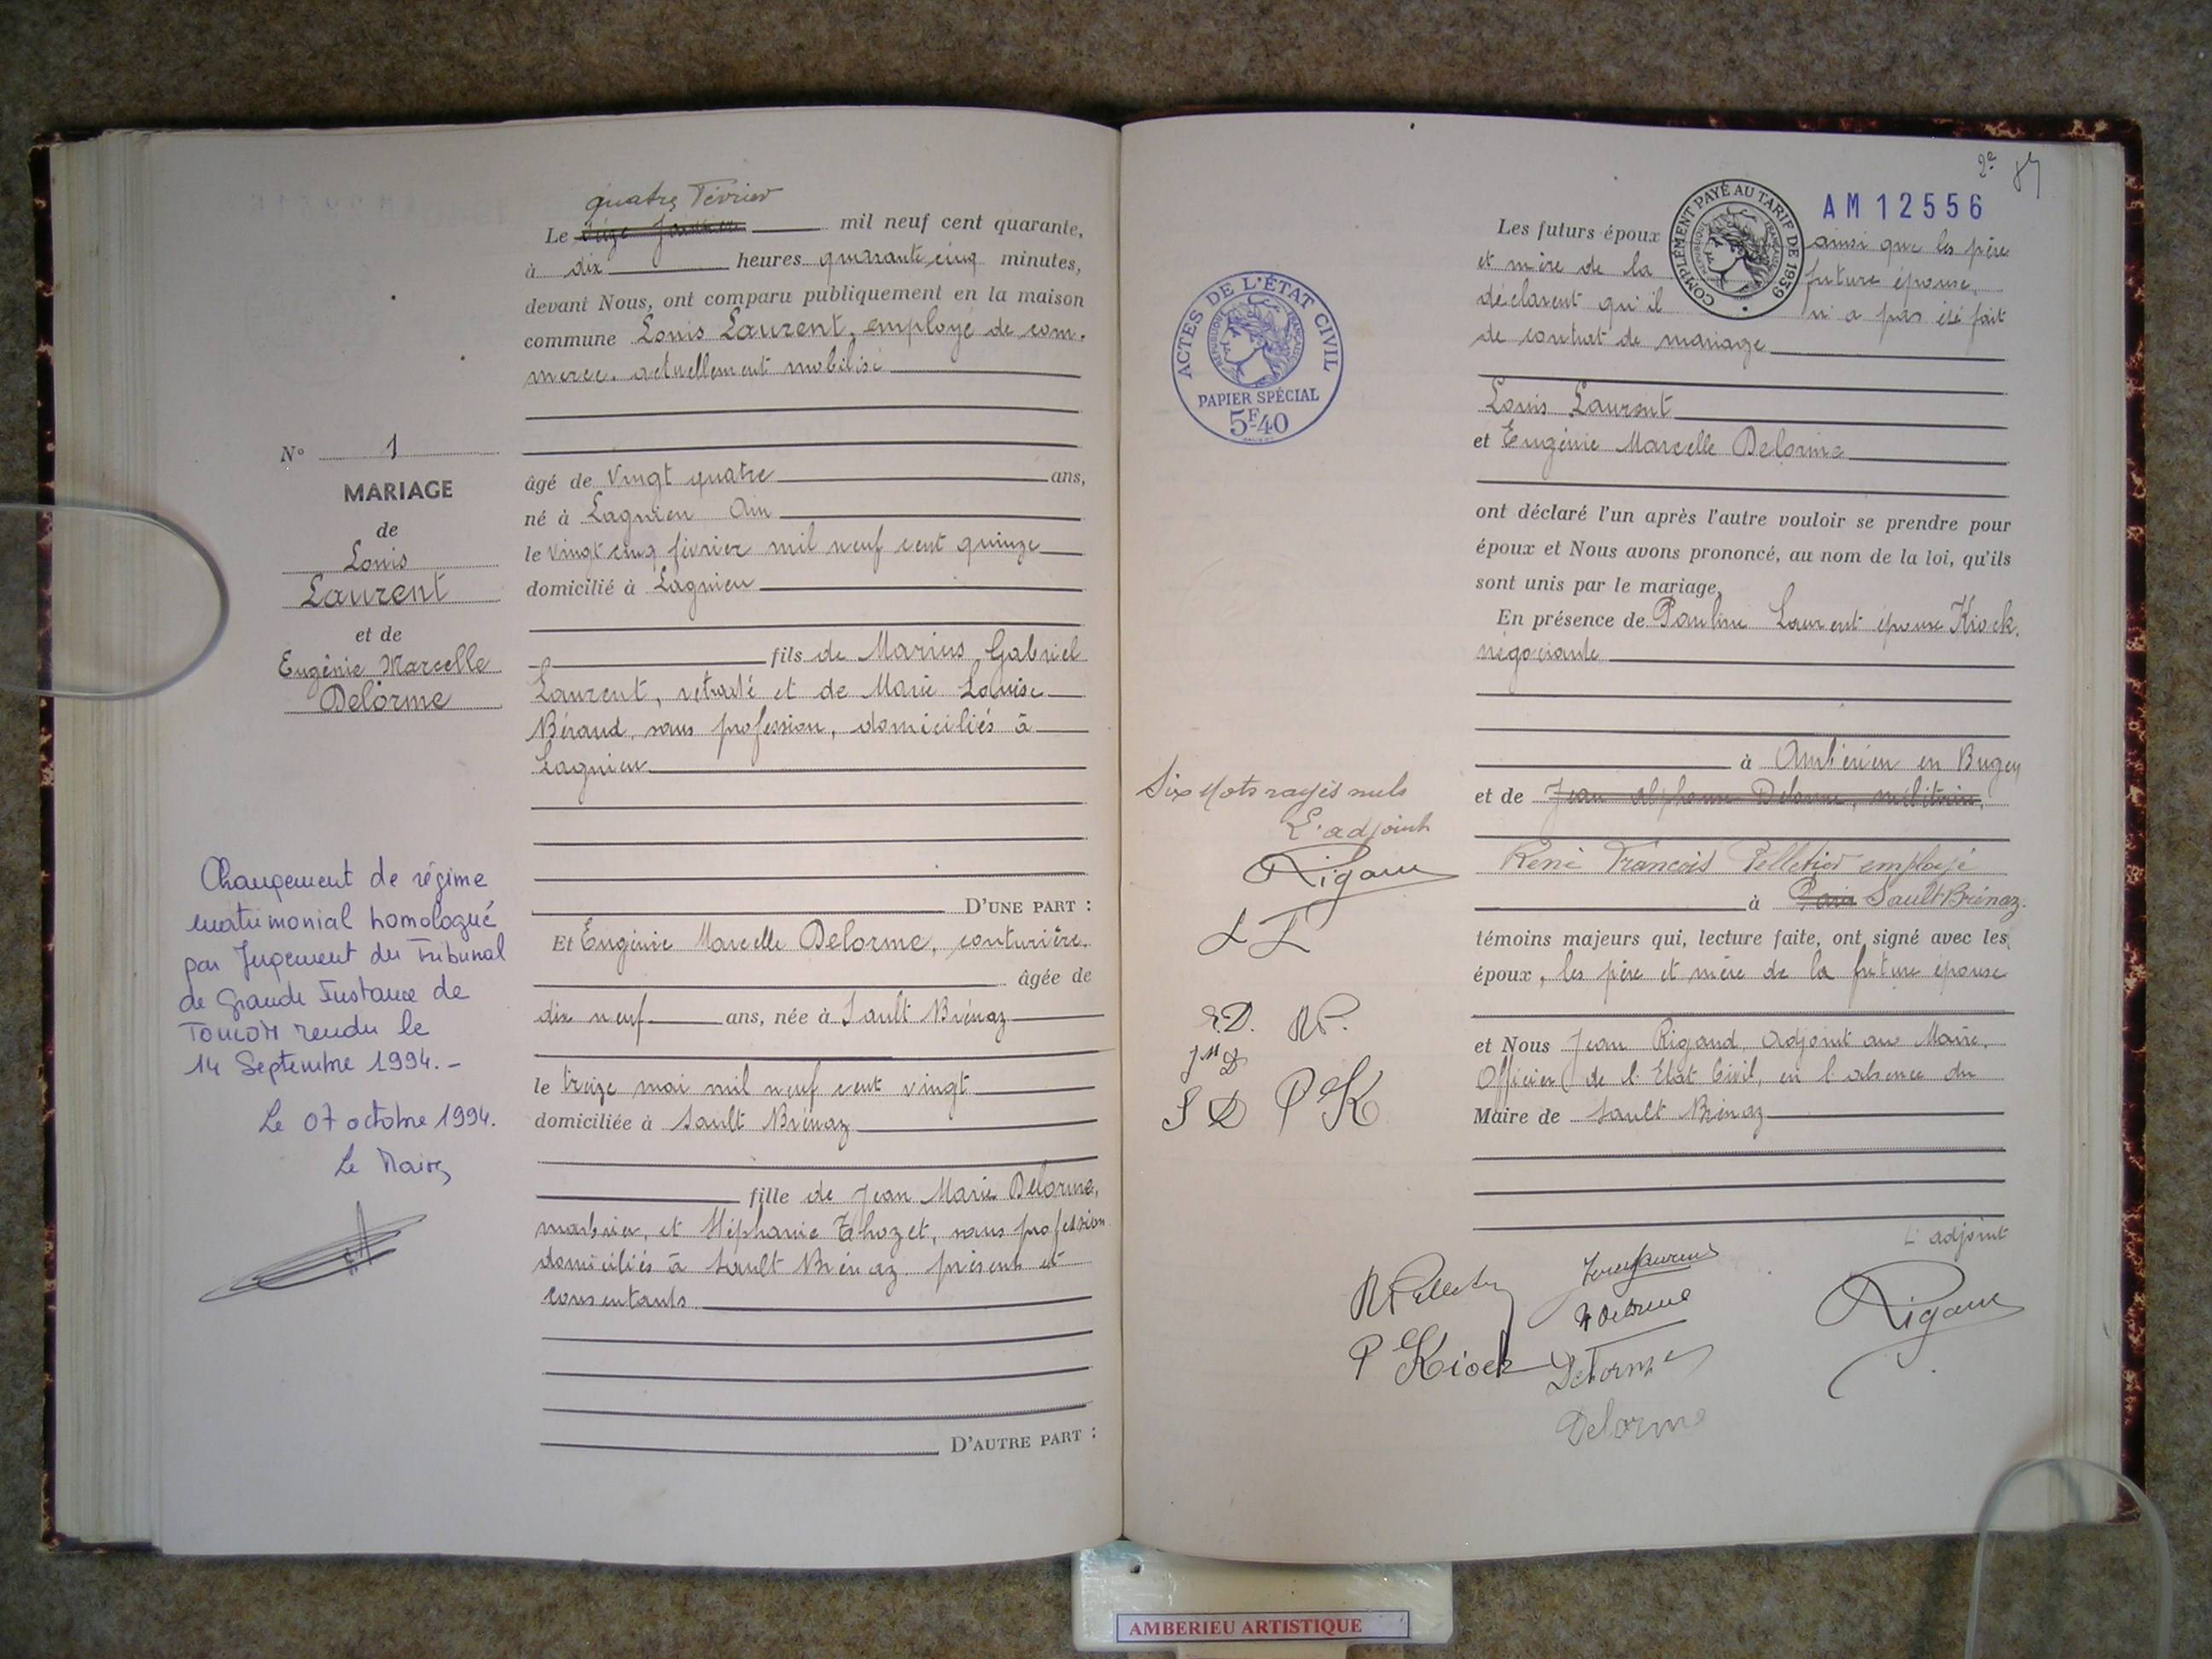 quatre Février
Le treize Janvier mil neuf cent quarante,
à dix heures quarante cinq minutes,
devant Nous, ont comparu publiquement en la maison
commune Louis Laurent, employé de com-
merce, actuellement mobilisé
N° 1
MARIAGE
de
Louis
Laurent
et de
Eugénie Marcelle
Delorme
âgé de vingt quatre ans,
né à Lagnieu Ain
le vingt cinq février mil neuf cent quinze
domicilié à Lagnieu
fils de Marius Gabriel
Laurent, retraité et de Marie Louise
Béraud, sans profession, domiciliés à
Lagnieu
D'UNE PART :
Et Eugénie Marcelle Delorme, couturière,
âgée de
dix neuf ans, née à Sault Brénaz
le treize mai mil neuf cent vingt
domiciliée à Sault Brénaz
fille de Jean Marie Delorme,
marbrier, et Stéphanie Thozet, sans profession
domiciliés à Sault Brénaz présents et
consentants
D'AUTRE PART :
Changement de régime
matrimonial homologué
par Jugement du Tribunal
de Grande Instance de
TOULON rendu le
14 Septembre 1994.-
Le 07 octobre 1994.
Le Maire
2e
AM12556
COMPLÉMENT PAYÉ AU TARIF DE 1939
RÉPUBLIQUE FRANÇAISE
Les futurs époux ainsi que les père
et mère de la future épouse,
déclarent qu'il n'a pas été fait
de contrat de mariage
ACTES DE L'ÉTAT CIVIL
RÉPUBLIQUE FRANÇAISE
PAPIER SPÉCIAL
5F40
Louis Laurent
et Eugénie Marcelle Delorme
ont déclaré l'un après l'autre vouloir se prendre pour
époux et Nous avons prononcé, au nom de la loi, qu'ils
sont unis par le mariage.
En présence de Pauline Laurent épouse Kiock,
négociante
à Ambérieu en Bugey
et de Jean Alphonse Delorme, militaire,
René François Pelletier employé
à Paris Sault Brénaz.
témoins majeurs qui, lecture faite, ont signé avec les
époux, les père et mère de la future épouse
et Nous Jean Rigaud, Adjoint au Maire,
Officier de l'Etat Civil, en l'absence du
Maire de Sault Brénaz
Six Mots rayés nuls
L'adjoint
Rigaud
LL
E.D. RP.
JM D
SD PK
L'adjoint
R Pelletier
Louis Laurent
E Delorme
P Kiock
Delorme
Delorme
Rigaud
AMBERIEU ARTISTIQUE